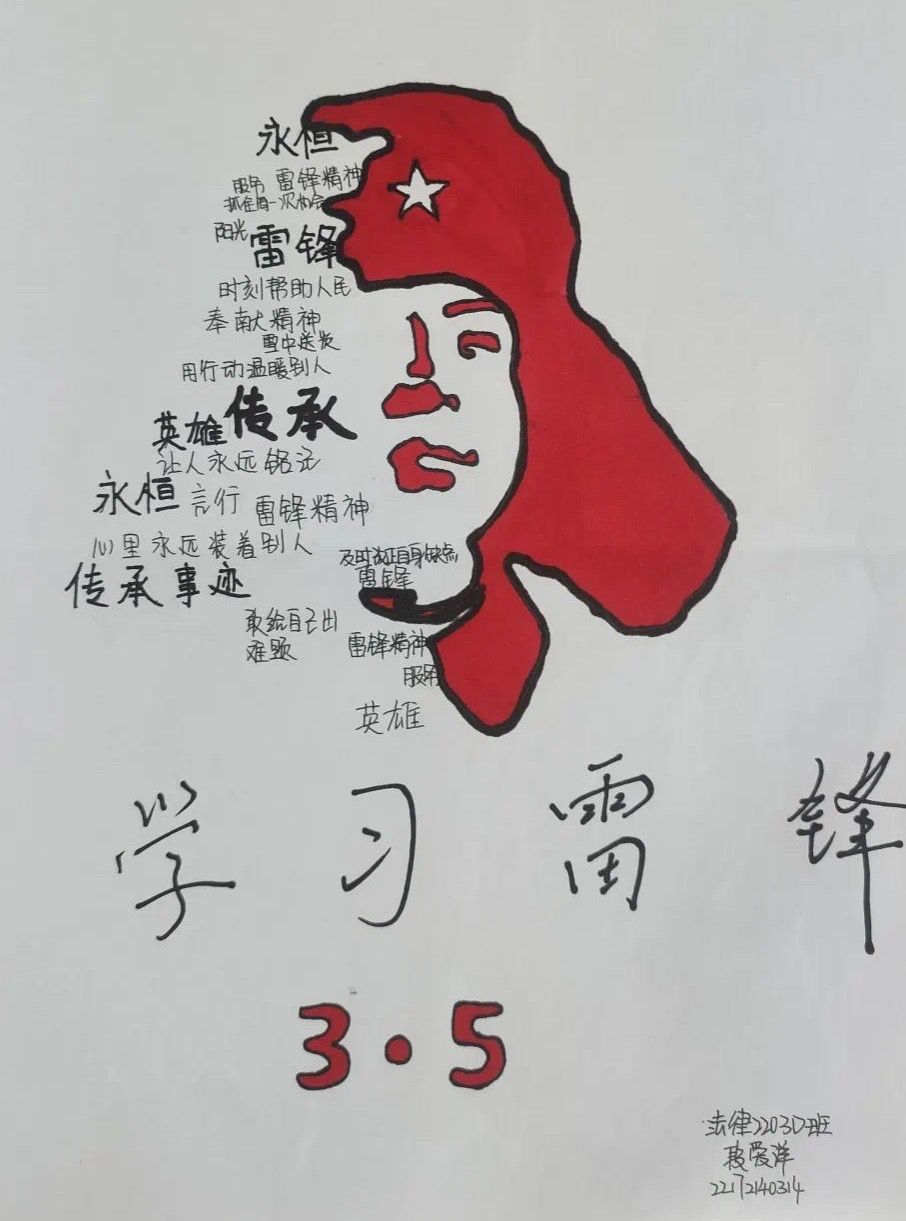 永恒
服务 雷锋精神
抓住每一次机会
阳光 雷锋
时刻帮助人民
奉献精神
雪中送炭
用行动温暖别人
英雄 传承
让人永远铭记
永恒 言行 雷锋精神
心里永远装着别人
及时改正自身缺点
传承事迹 雷锋
敢给自己出
难题
雷锋精神
英雄
学习雷锋
3·5
法律2203D班
22172140314